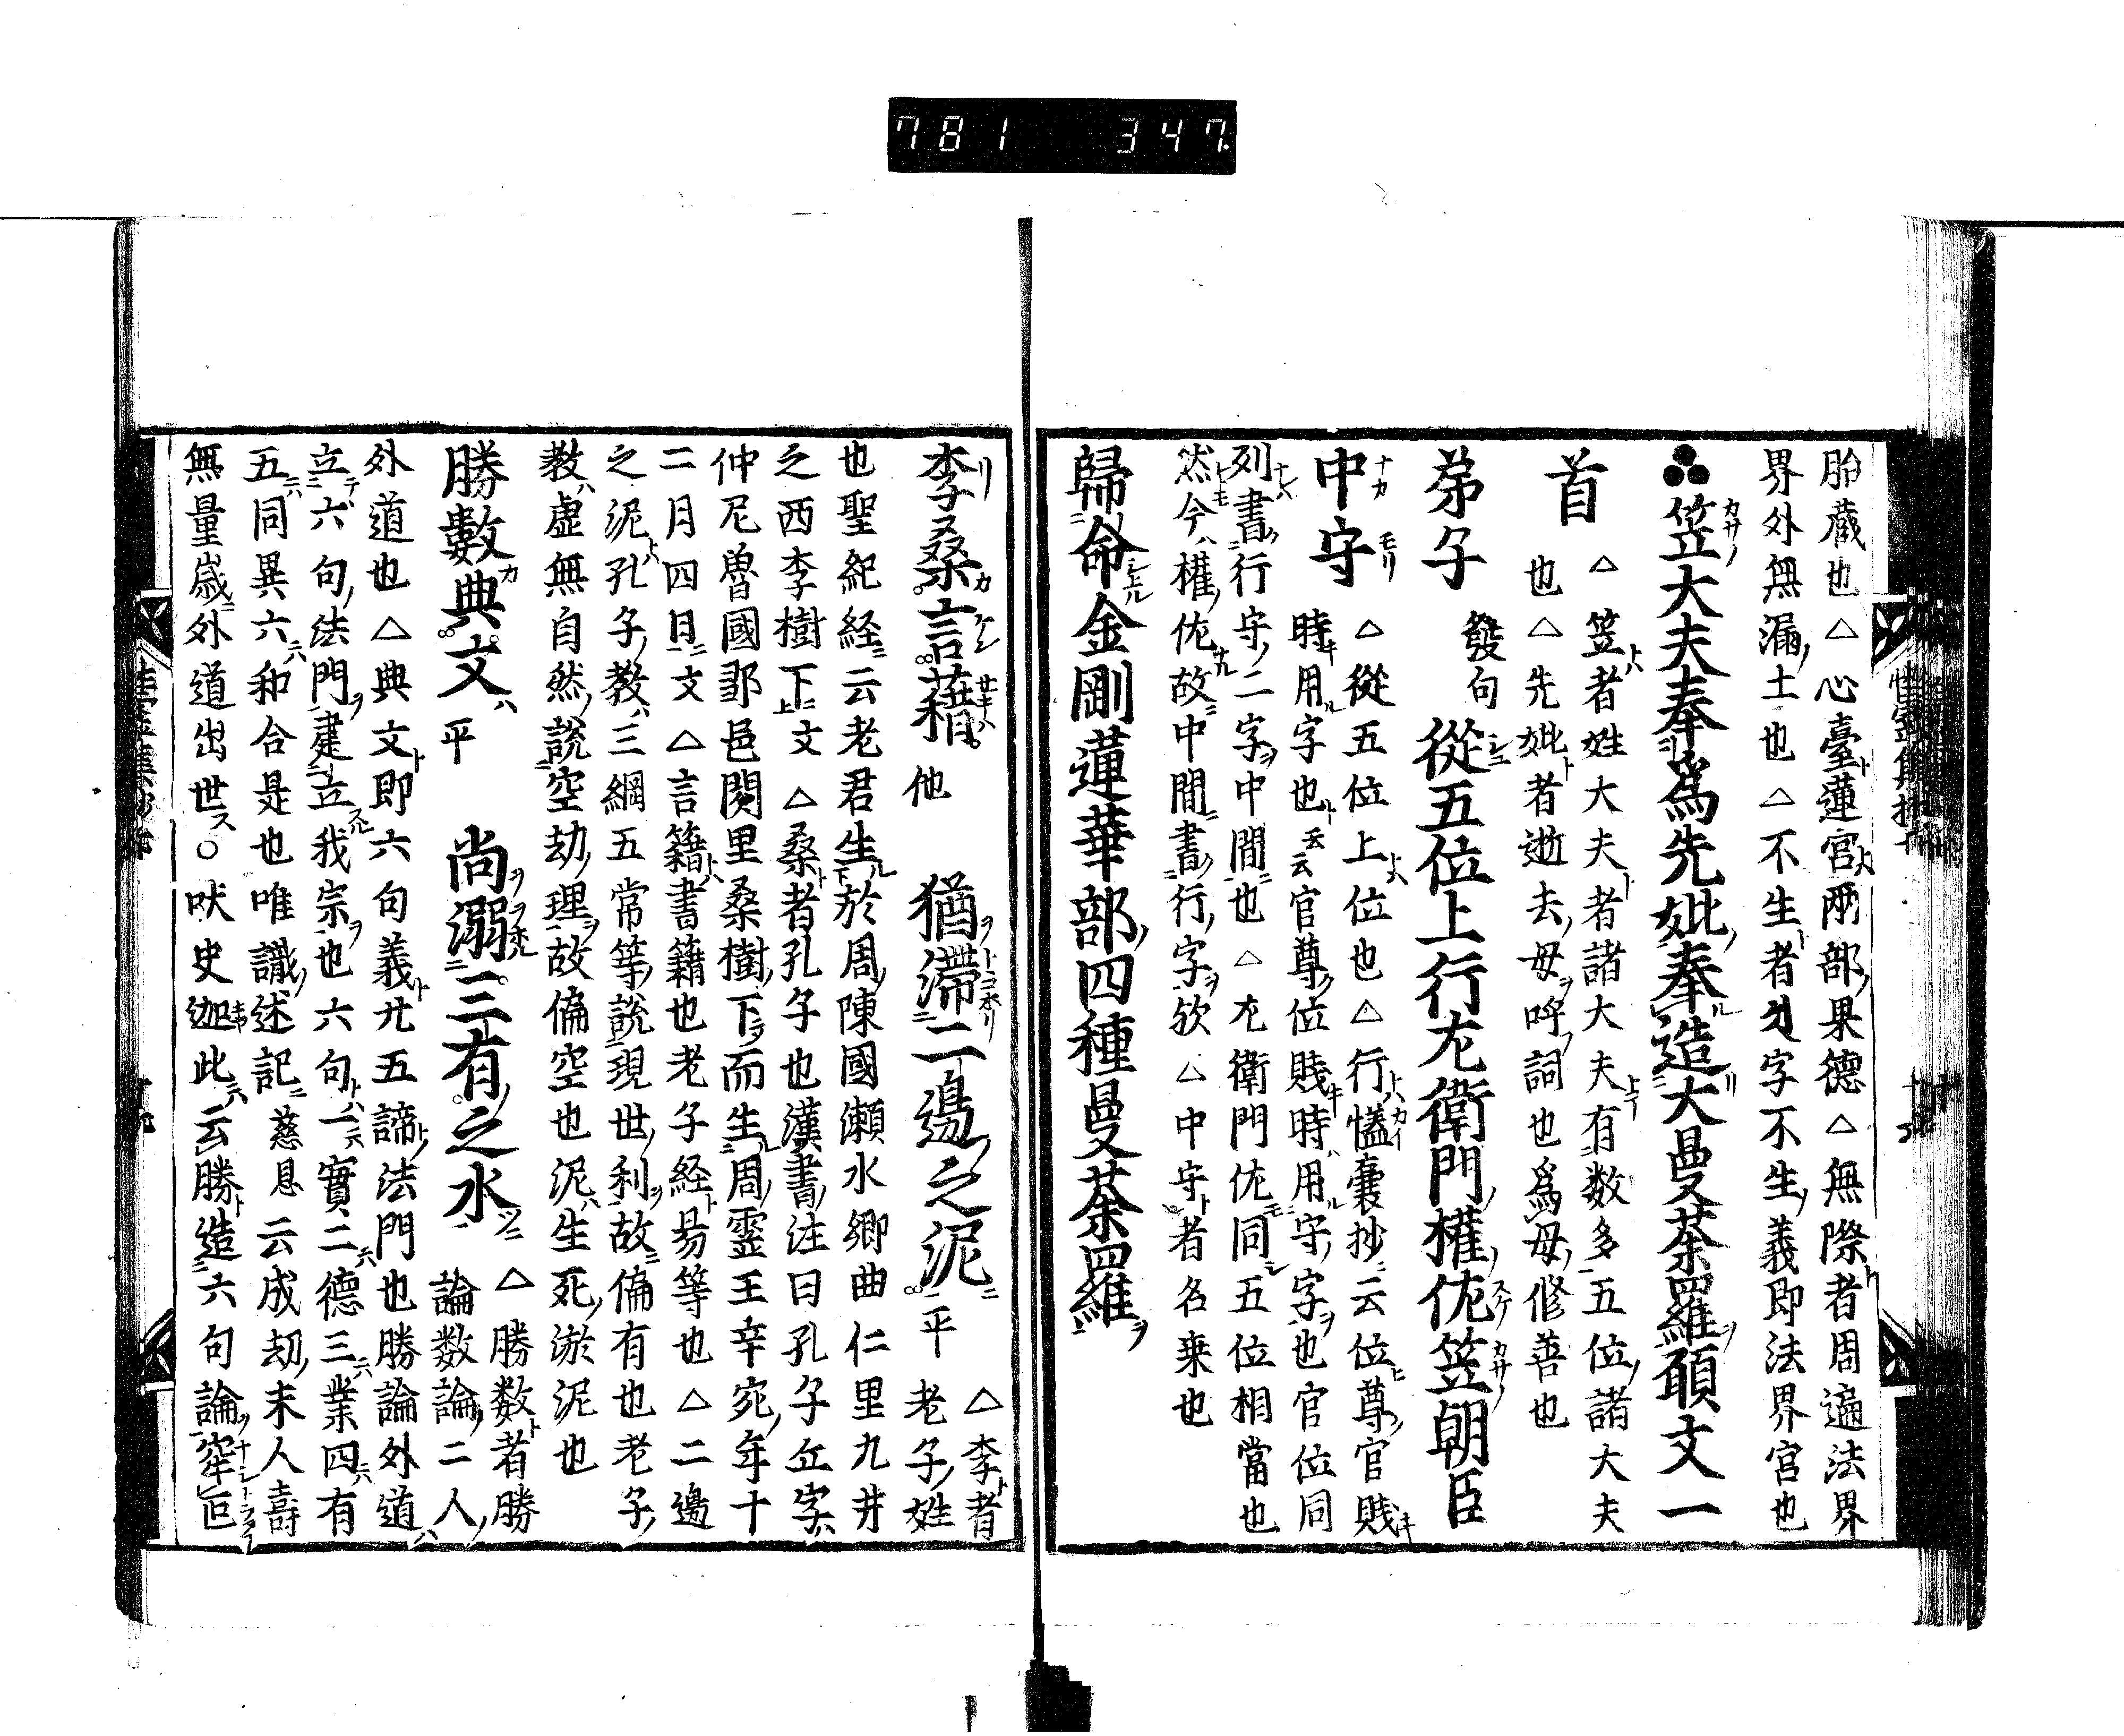 781 347
胎藏也△心臺蓮宮兩部果德△無際者周遍法界
界外無漏土也△不生者字不生義即法界宮也
笠大夫奉爲先妣奉造大曼荼羅願文一
首
△笠者姓大夫者諸大夫有数多五位諸大夫
也△先妣者逝去母呼詞也爲母修善也
弟子
發句
從五位上行左衛門權佐笠朝臣
中守
△從五位上位也△行壒囊抄云位尊官賎
時用字也云云官尊位賎時用守字也官位同
列書行守二字中間也△左衛門佐同五位相當也
然今權佐故中間書行字欤△中守者名乗也
歸命金剛蓮華部四種曼荼羅
李桑言藉
他
猶滯二邊之泥
平
△李者
老子姓
也聖紀経云老君生於周陳國瀬水郷曲仁里九井
之西李樹下文△桑者孔子也漢書注曰孔子丘字
仲尼魯國鄒邑闕里桑樹下而生周霊王辛宛年十
二月四日文△言籍書籍也老子経易等也△二邊
之泥孔子教三綱五常等說現世利故偏有也老子
教虚無自然說空劫理故偏空也泥生死淤泥也
勝數典文
平
尚溺三有之水
△勝数者勝
論数論二人
外道也△典文即六句義廿五諦法門也勝論外道
立六句法門建立我宗也六句一實二德三業四有
五同異六和合是也唯識述記慈息云成劫末人壽
無量歳外道出世○吠史迦此云勝造六句論